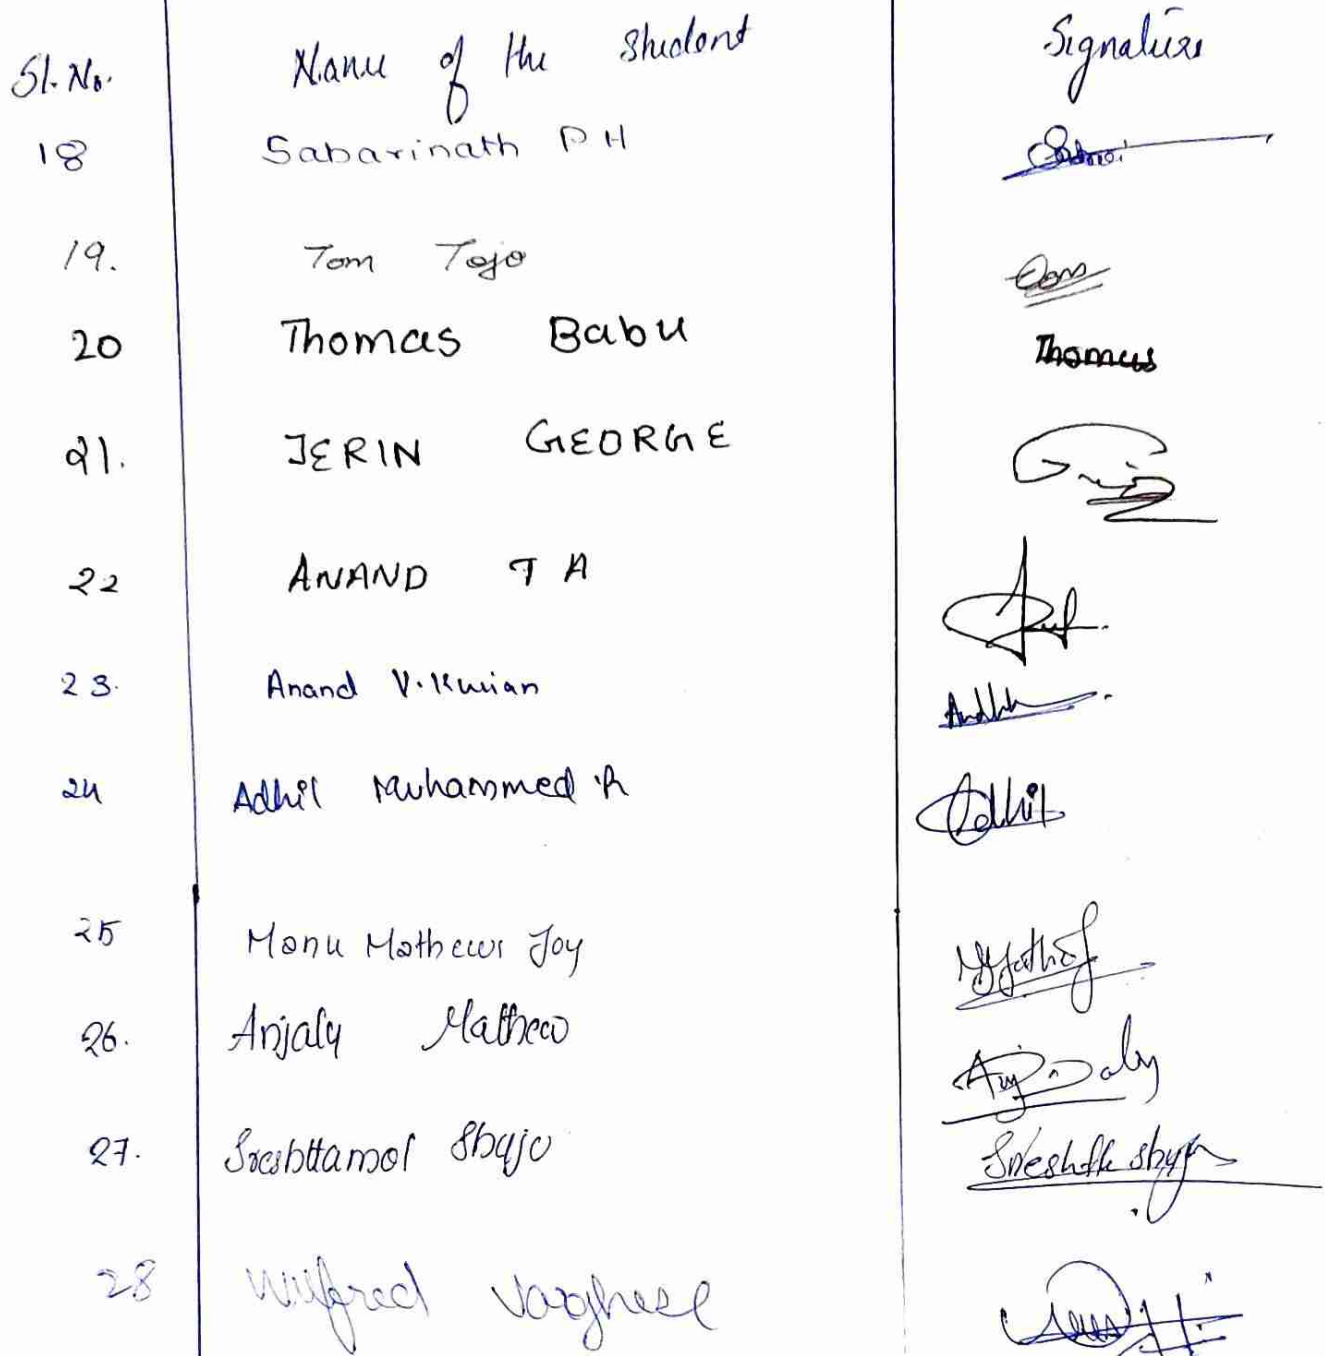 Sl. No. Name of the Student Signature
18 Sabarinath P H
19. Tom Tojo Tom
20 Thomas Babu Thomas
21. JERIN GEORGE
22 ANAND T A
23. Anand V. Kurian
24 Adhil Muhammed R Adhil
25 Monu Mathews Joy
26. Anjaly Mathew Anjaly
27. Sreshttamol Shaju Sreshtta Shaju
28 Wilfred Varghese